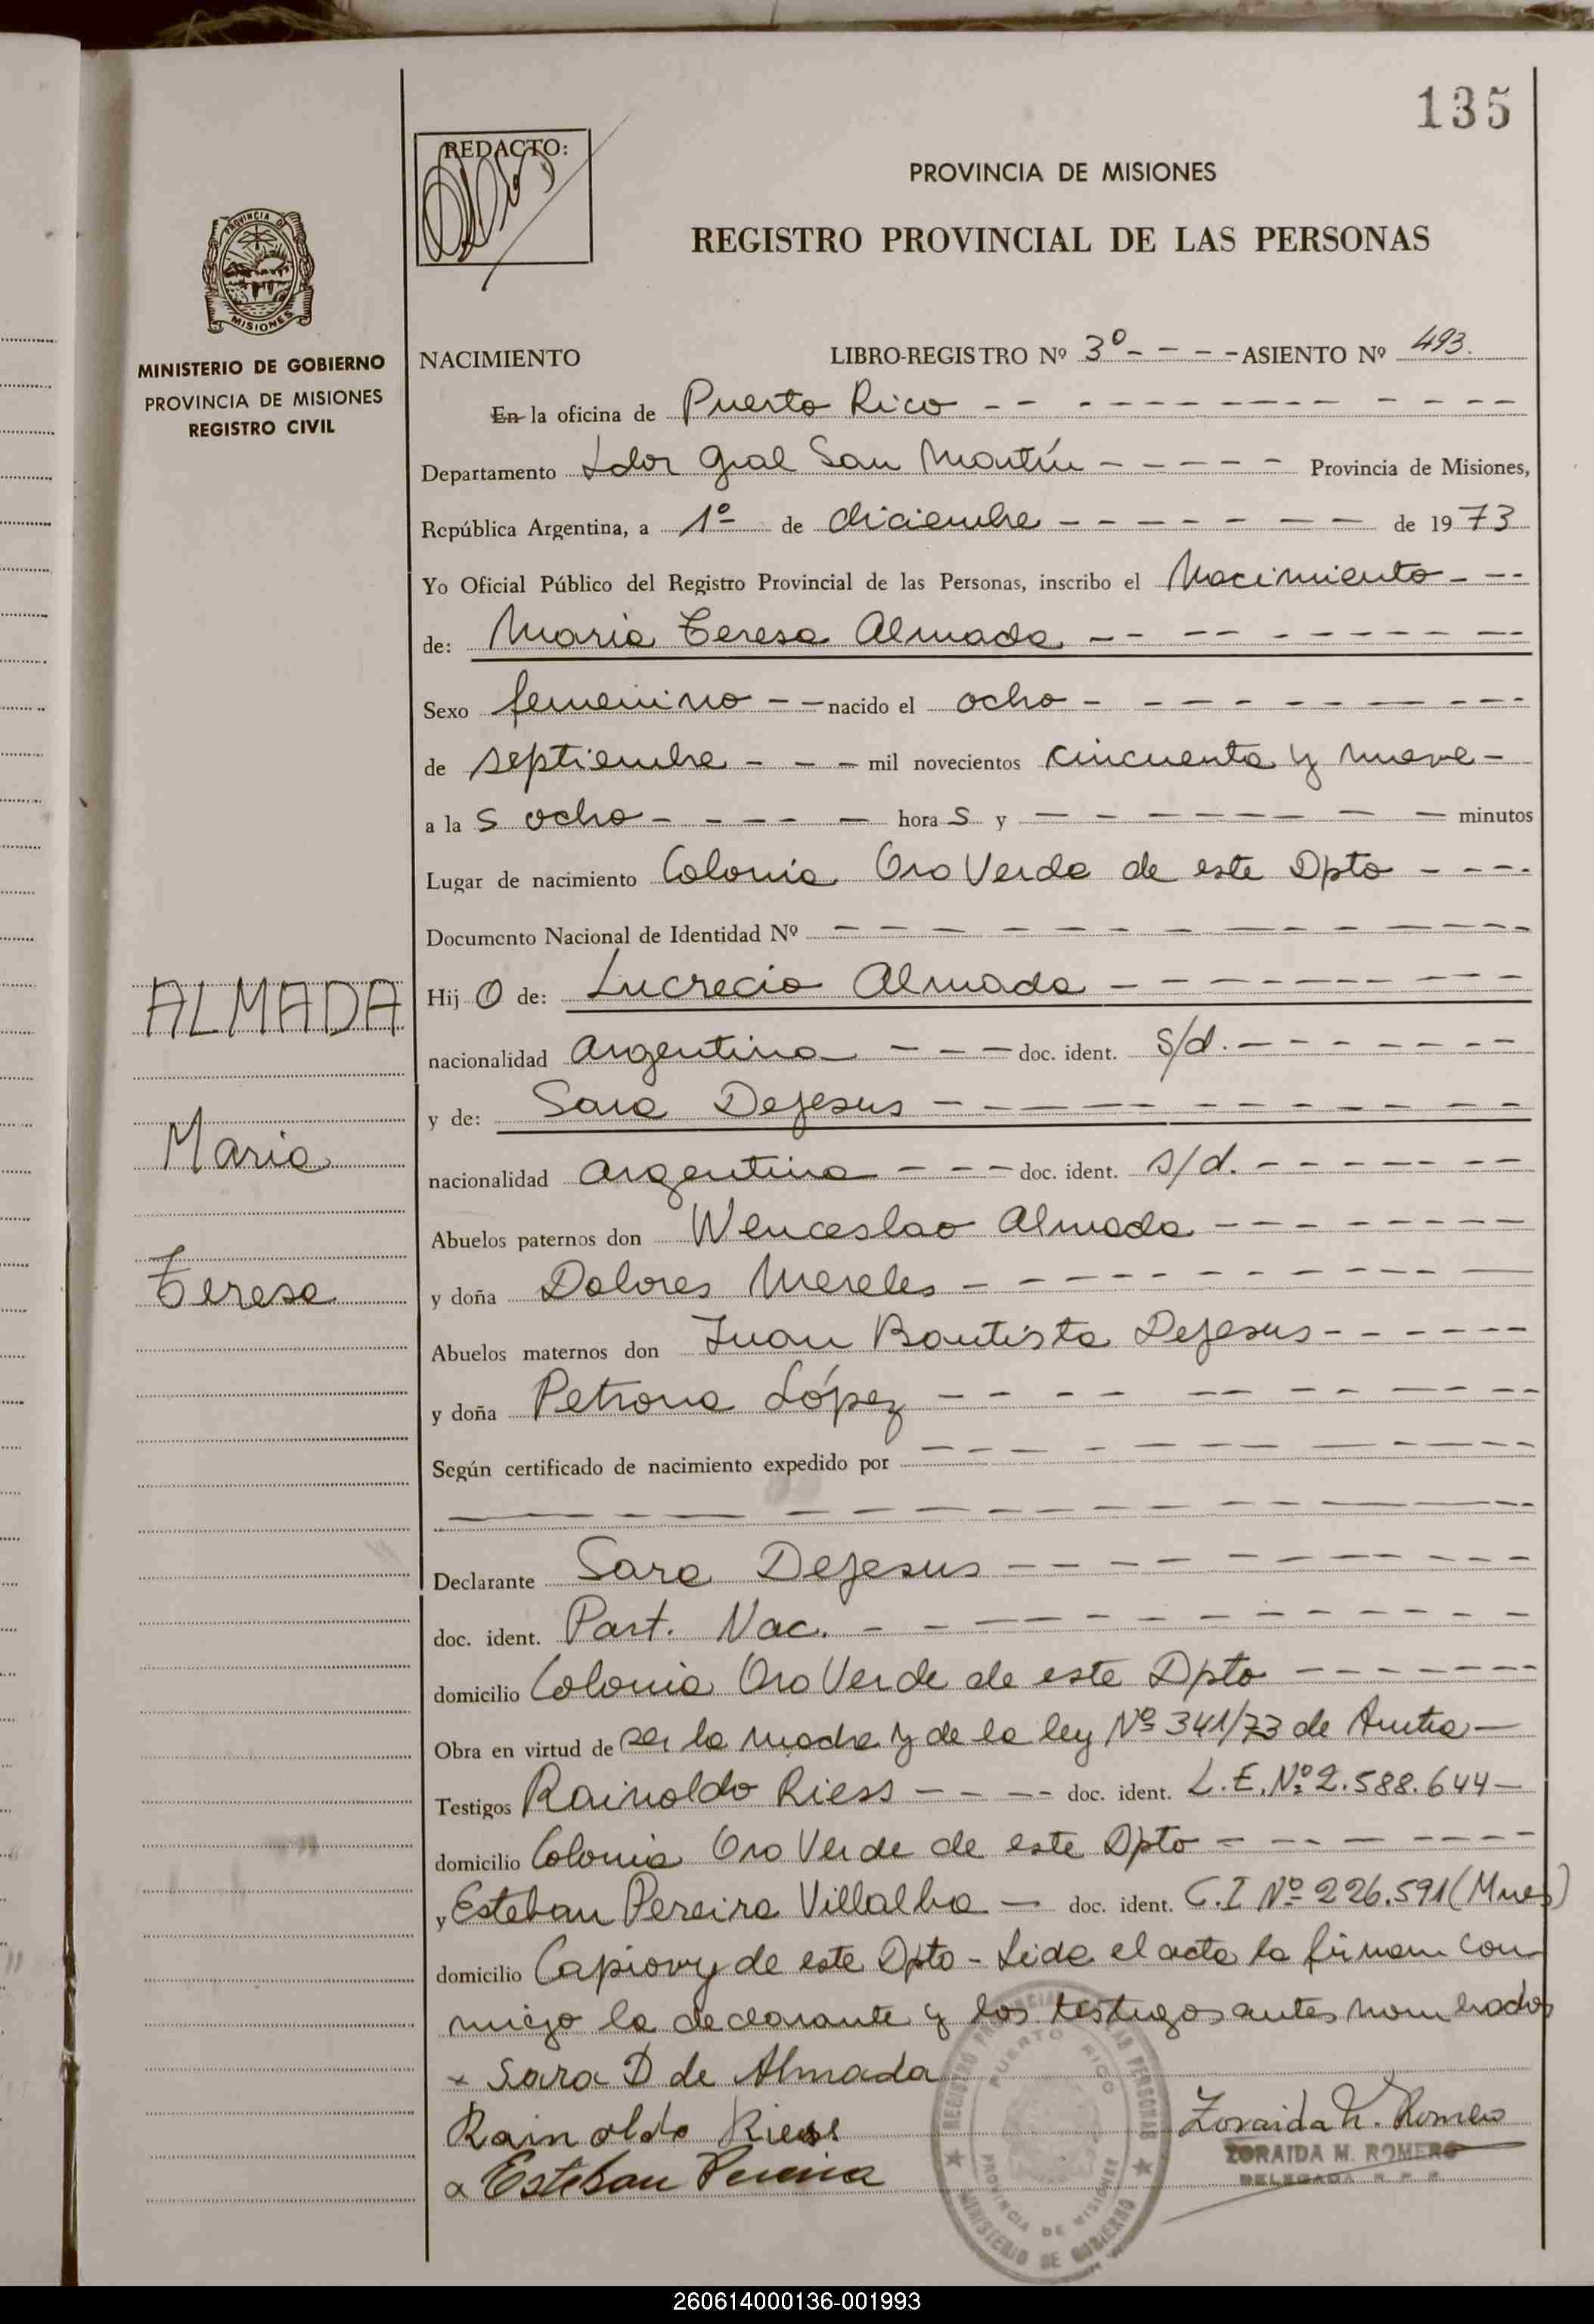 135
REDACTO:
PROVINCIA DE MISIONES
REGISTRO PROVINCIAL DE LAS PERSONAS
PROVINCIA DE
MISIONES
MINISTERIO DE GOBIERNO
PROVINCIA DE MISIONES
REGISTRO CIVIL
NACIMIENTO LIBRO-REGISTRO Nº 3º - - - - ASIENTO Nº 493.
En la oficina de Puerto Rico - - - - - - - - - - - - - -
Departamento Ldor Gral San Martín - - - - - - Provincia de Misiones,
República Argentina, a 1º de diciembre - - - - - - - - de 1973
Yo Oficial Público del Registro Provincial de las Personas, inscribo el Nacimiento - - -
de: Maria Teresa Almada - - - - - - - - - - -
Sexo femenino - - nacido el ocho - - - - - - - - - - -
de septiembre - - - mil novecientos cincuenta y nueve -
a la s ocho - - - - - hora s y - - - - - - - - - minutos
Lugar de nacimiento Colonia Oro Verde de este Dpto - - - -
Documento Nacional de Identidad Nº - - - - - - - - - - - -
Hij o de: Lucrecio Almada - - - - - - - - - -
nacionalidad argentina - - - doc. ident. s/d. - - - - - - - -
y de: Sara Dejesus - - - - - - - - - - - -
nacionalidad argentina - - - doc. ident. s/d. - - - - - - -
Abuelos paternos don Wenceslao Almada - - - - - - - -
y doña Dolores Mereles - - - - - - - - - - - -
Abuelos maternos don Juan Bautista Dejesus - - - - - -
y doña Petrona López - - - - - - - - - - - -
Según certificado de nacimiento expedido por - - - - - - - - - -
- - - - - - - - - - - - - - -
ALMADA
Maria
Teresa
Declarante Sara Dejesus - - - - - - - - - - -
doc. ident. Part. Nac. - - - - - - - - - - -
domicilio Colonia Oro Verde de este Dpto - - - - - - -
Obra en virtud de ser la madre y de la ley Nº 341/73 de Amtia -
Testigos Rainoldo Riess - - - - doc. ident. L.E. Nº 2.588.644 -
domicilio Colonia Oro Verde de este Dpto - - - - - - - -
y Esteban Pereira Villalba - doc. ident. C.I Nº 226.591 (Mnes)
domicilio Capiovy de este Dpto - Lida el acta la firman con
migo la declarante y los testigos antes nombrados
x Sara D de Almada
Rainoldo Riess
Esteban Pereira
Zoraida M. Romero
ZORAIDA M. ROMERO
DELEGADA R. P. P.
REGISTRO PROVINCIAL DE LAS PERSONAS
PUERTO RICO
PROVINCIA DE MISIONES
MINISTERIO DE GOBIERNO
260614000136-001993